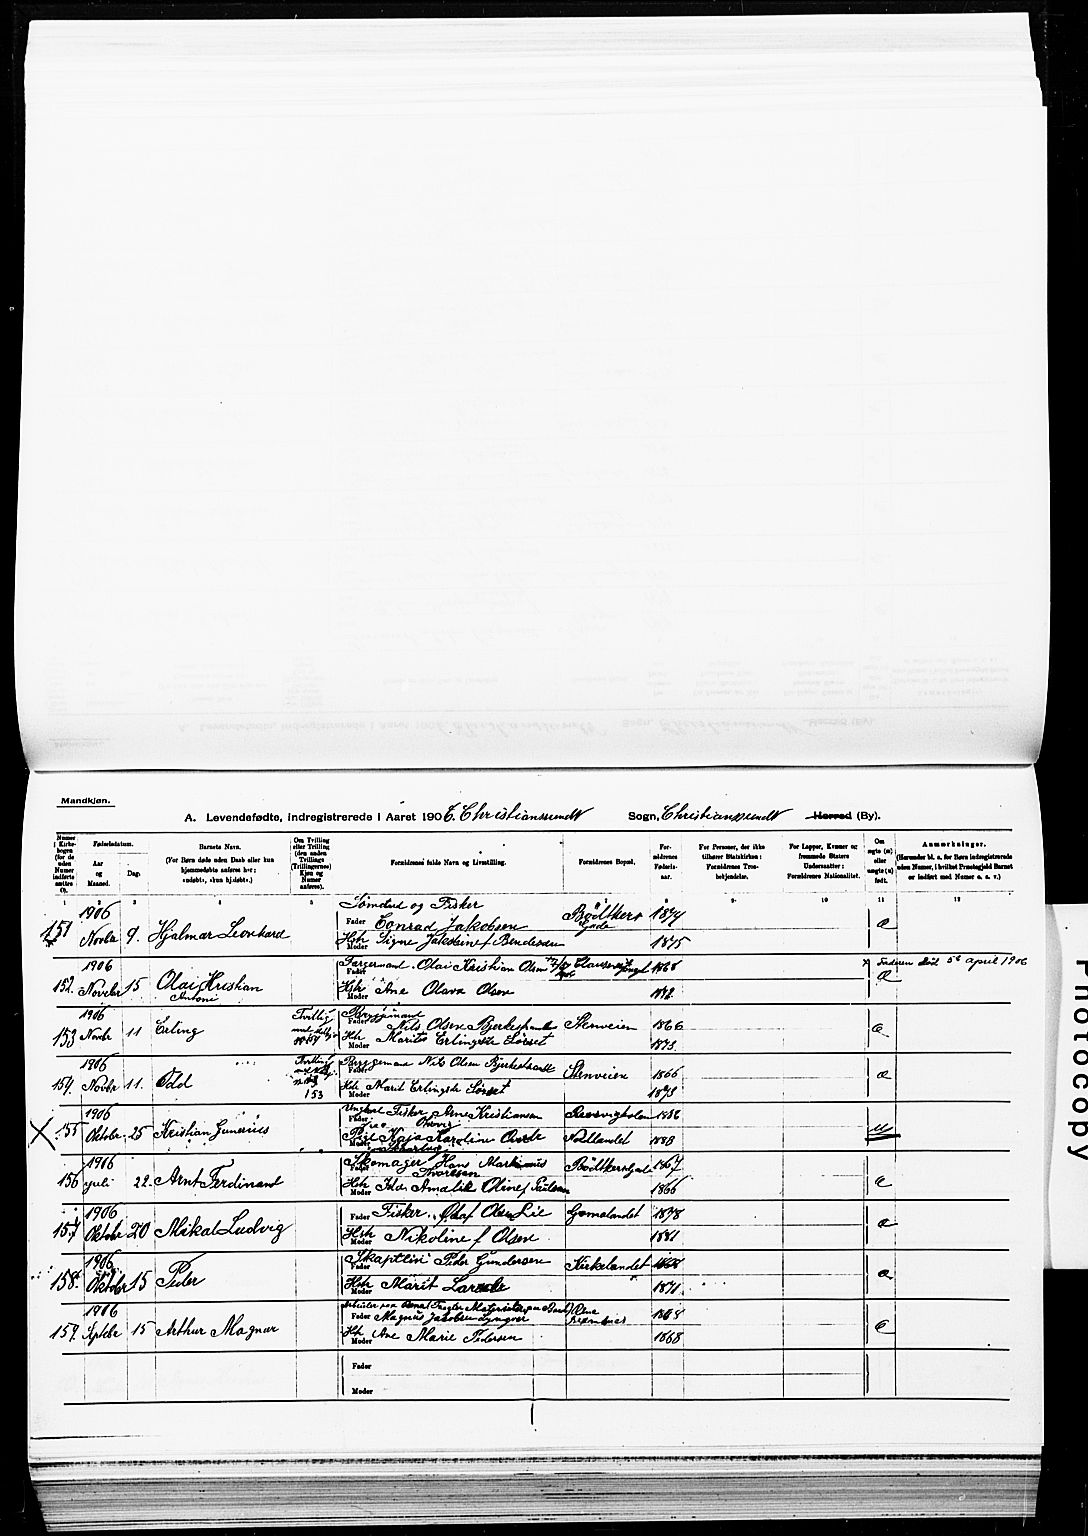 Mandkjøn.
A. Levendefødte, indregistrerede i Aaret 1906 Christianssundt Sogn, Christianssundt Herred (By).
Numer i Kirkebogen (for de uden Numer indførte sættes 0). Fødselsdatum. Aar og Maaned. Dag. Barnets Navn. (For Børn døde uden Daab eller kun hjemmedøbte anføres her: «udøbt», «kun hj.døbt».) Om Tvilling eller Trilling (den anden Tvillings (Trillingernes) Kjøn og Numer anføres). Forældrenes fulde Navn og Livsstilling. Forældrenes Bopæl. Forældrenes Fødselsaar. For Personer, der ikke tilhører Statskirken: Forældrenes Trosbekjendelse. For Lapper, Kvæner og fremmede Staters Undersaatter: Forældrenes Nationalitet. Om ægte (æ) eller uægte (u) født. Anmærkninger. (Herunder bl. a. for Børn indregistrerede uden Numer, i hvilket Præstegjeld Barnet er indført med Numer o. s. v.)
1 2 3 4 5 6 7 8 9. 10 11 12
1906 Sømand og Fisker
151 Novbr 9. Hjalmar Leonhard Fader Conrad Jakobsen Bødtkers Gade 1874 æ
Hstr Moder Signe Jaksine f Bendixsen 1875
1906 Fader Olai Kristian Olsen 1868 x Faderen død 5te april 1906
152. Novebr 15 Olai Kristian Antoni Hstr Moder Ane Olava Olsen Æ
1906 Tvilling
153 Novbr 11 Erling Fader Nils Olsen Stenveien 1866 æ
Hstr Moder Marit Erlingsdr Sørset 1873
1906 Tvilling Fader Nils Olsen 1866
154. Novbr 11. Odd 153 Hstr Moder Marit Erlingsdr Sørset Stenveien 1873 æ
1906 Ungkarl Fisker Arne Kristiansen Fader 1886
155 Oktobr 25 Kristian Gunerius Pige Kaja Karoline Moder Nordlandet 1888 u
1906 Skomager Hans Martinus Fader Bødtkersgade 1867
156 juli 22. Arnt Ferdinand Hstr Moder Ida Amalie Oline f Paulsen 1866 æ
1906 Fader Fisker Olaf Olsen Lie Gomalandet 1878
157 Oktobr 20 Mikal Ludvig Hstr Moder Nikoline f Olsen 1881 æ
1906 Fader Peder Gundersen Kirkelandet 1868
158. Oktobr 15 Peder Hstr Moder Marit 1871 æ
1906 Fader Magnus Jacobsen Lyngvær
159. Septbr 15 Arthur Magnar Hstr Moder Ane Marie Pedersen 1868 æ
Fader
Moder
Photocopy